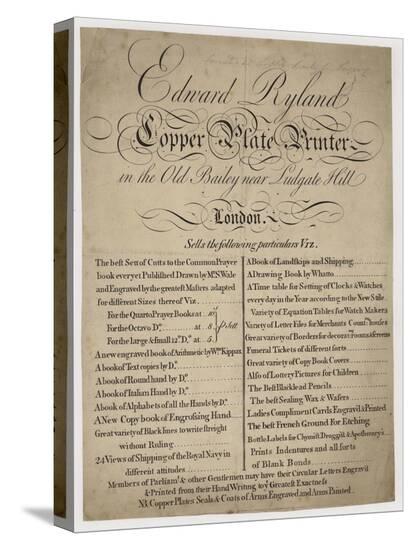 Edward Ryland
Copper Plate Printer
in the Old Bailey near Ludgate Hill
London.
Sells the following particulars Viz.
The best Sett of Cutts to the Common Prayer
book ever yet Publish'd Drawn by Mr. S. Wale
and Engraved by the greatest Masters adapted
for different Sizes thereof Viz.
For the Quarto Prayer Books at 10s
For the Octavo Do. at 8
For the large & small 12s. Do. at 5
A new engraved book of Arithmetic by Wm. Kippax
A book of Text copies by Do.
A book of Round hand by Do.
A book of Italian Hand by Do.
A book of Alphabets of all the Hands by Do.
A New Copy book of Engrossing Hand
Great variety of Black lines to write streight
without Ruling
24 Views of Shipping of the Royal Navy in
different attitudes
A Book of Landskips and Shipping
A Drawing Book by Whatto
A Time table for Setting of Clocks & Watches
every day in the Year according to the New Stile
Variety of Equation Tables for Watch Makers
Variety of Letter Files for Merchants Compting houses
Great variety of Borders for decorating Rooms & screens
Funeral Tickets of different sorts
Great variety of Copy Book Covers
Also of Lottery Pictures for Children
The Best Blacklead Pencils
The best Sealing Wax & Wafers
Ladies Compliment Cards Engrav'd & Printed
The best French Ground For Etching
Bottle Labels for Chymist, Druggist, & Apothecary's
Prints Indentures and all sorts
of Blank Bonds
Members of Parliamt. & other Gentlemen may have their Circular Letters Engrav'd
& Printed from their Hand Writing wth. ye Greatest Exactness
NB Copper Plates Seals & Coats of Arms Engraved and Arms Painted